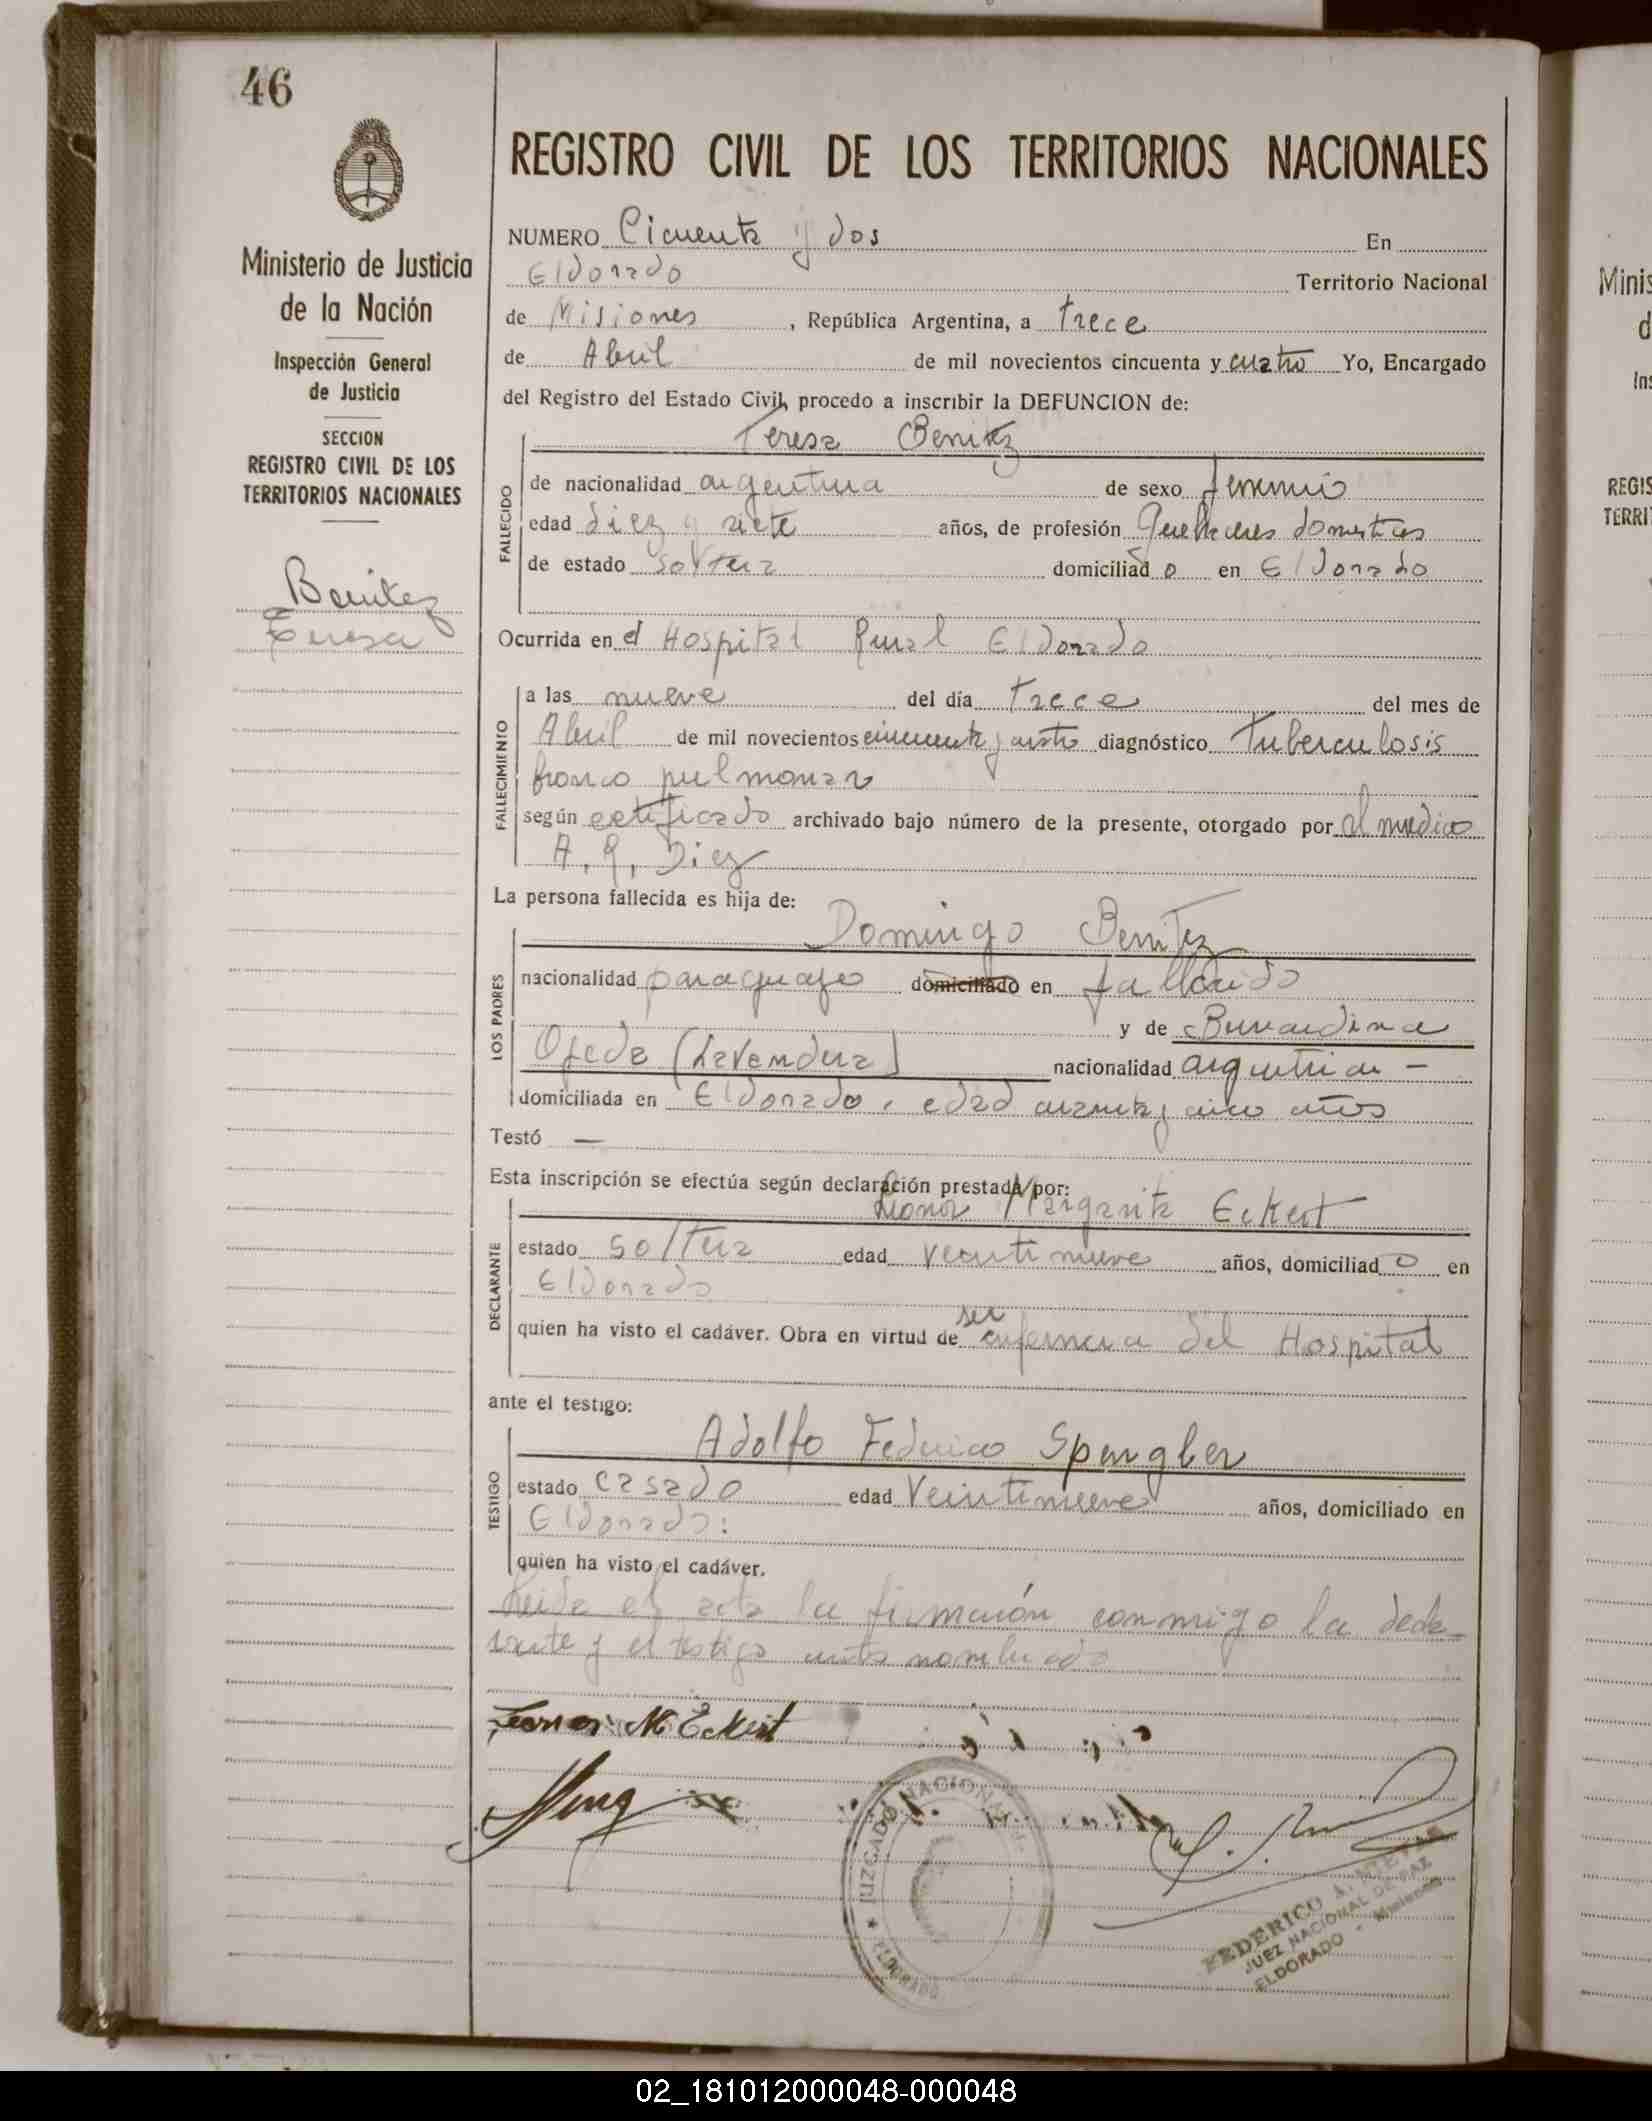 46
Ministerio de Justicia
de la Nación
Inspección General
de Justicia
SECCION
REGISTRO CIVIL DE LOS
TERRITORIOS NACIONALES
Benitez
Teresa
REGISTRO CIVIL DE LOS TERRITORIOS NACIONALES
NUMERO Cicuenta y dos En
Eldorado Territorio Nacional
de Misiones, República Argentina, a trece
de Abril de mil novecientos cincuenta y cuatro Yo, Encargado
del Registro del Estado Civil, procedo a inscribir la DEFUNCION de:
Teresa Benitez
FALLECIDO
de nacionalidad argentina de sexo femenino
edad diez y siete años, de profesión Quehaceres domesticos
de estado soltera domiciliad o en Eldorado
Ocurrida en el Hospital Rural Eldorado
FALLECIMIENTO
a las nueve del día trece del mes de
Abril de mil novecientos cincuenta y cuatro diagnóstico Tuberculosis
bronco pulmonar
según certificado archivado bajo número de la presente, otorgado por el medico
A. R. Diez
La persona fallecida es hija de:
Domingo Benitez
LOS PADRES
nacionalidad paraguayo domiciliado en fallecido
y de Bernardina
Ojeda (Lavandera) nacionalidad argentina -
domiciliada en Eldorado, edad cuarenta y cinco años
Testó —
Esta inscripción se efectúa según declaración prestada por:
Leonor Margarita Eckert
DECLARANTE
estado soltera edad veintinueve años, domiciliad o en
Eldorado
quien ha visto el cadáver. Obra en virtud de ser enfermera del Hospital
ante el testigo:
Adolfo Federico Spengler
TESTIGO
estado casado edad Veintinueve años, domiciliado en
Eldorado:
quien ha visto el cadáver.
Leida el acta la firmarón conmigo la decla-
rante y el testigo antes nombrado
Leonor M Eckert
JUZGADO NACIONAL
ELDORADO
FEDERICO A.
JUEZ NACIONAL DE PAZ
ELDORADO - Misiones
Minis
d
Ins
REGIS
TERRI
02_181012000048-000048